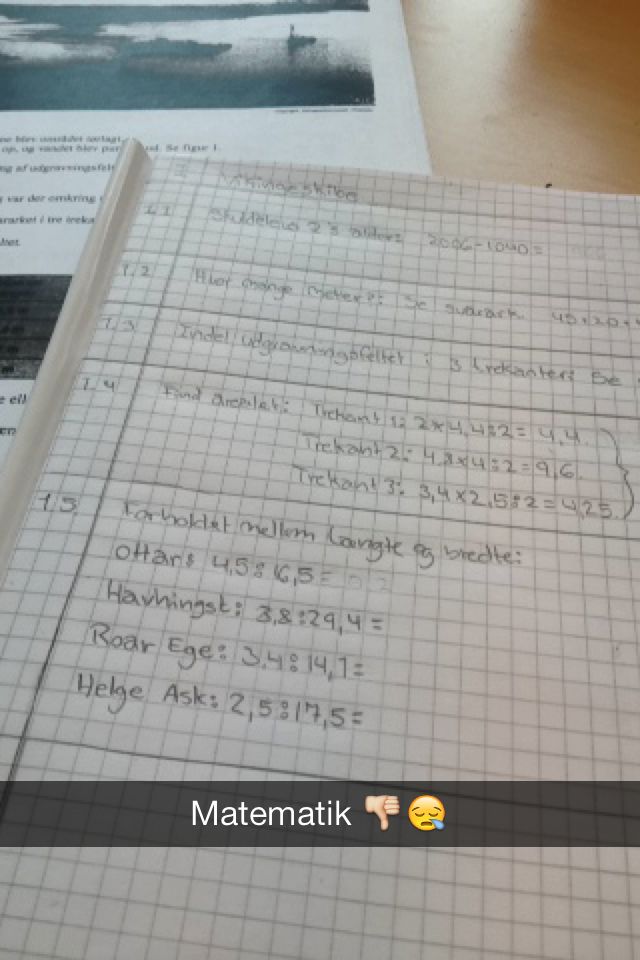 op, og vandet blev
ud. Se figur 1.
ng af udgravningsfelt
var der omkring
ararket i tre treka
1 Vikingeskibe
1.1 Skuldelev 2's alder: 2006-1040=
1.2 Hvor mange meter?: Se svarark.
1.3 Indel udgravningsfeltet i 3 trekanter: Se
1.4 Find arealet: Trekant 1: 2×4,4:2= 4,4.
Trekant 2: 4,8×4:2=9,6.
Trekant 3: 3,4×2,5:2=4,25.
1.5 Forholdet mellem længte og bredte:
Ottar: 4,5:16,5=
Havhingst: 3,8:29,4=
Roar Ege: 3.4:14,1=
Helge Ask: 2,5:17,5=
Matematik 👎😪